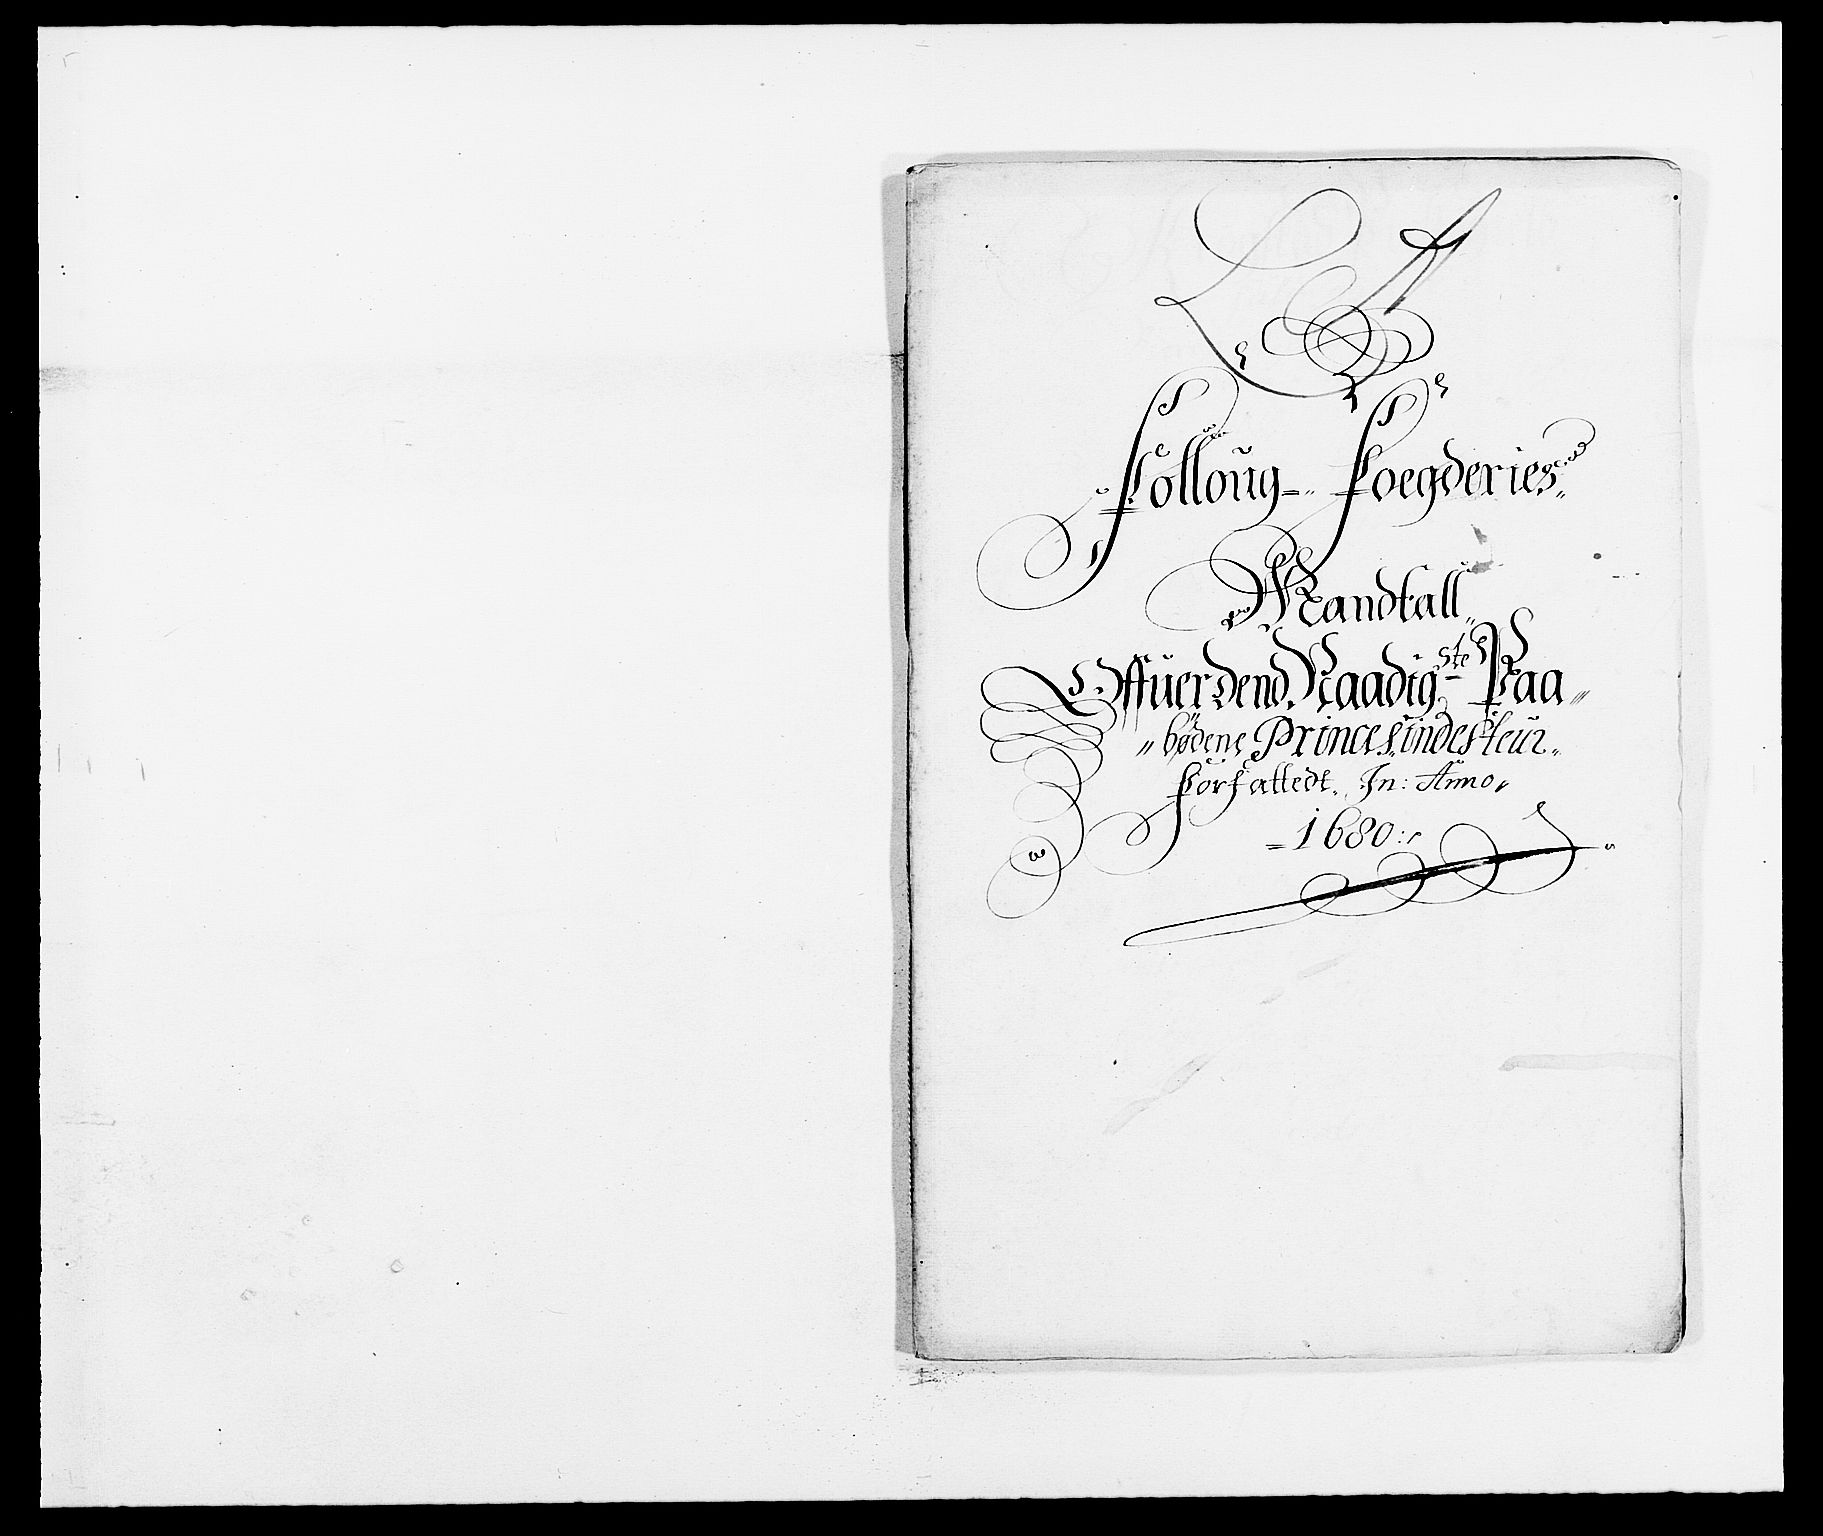 L A
Folloug- Foegderies
Mandtall
Offuer dend Naadigste Paa-
bødene Princesindesteur
Forfattedt. In: Anno
1680